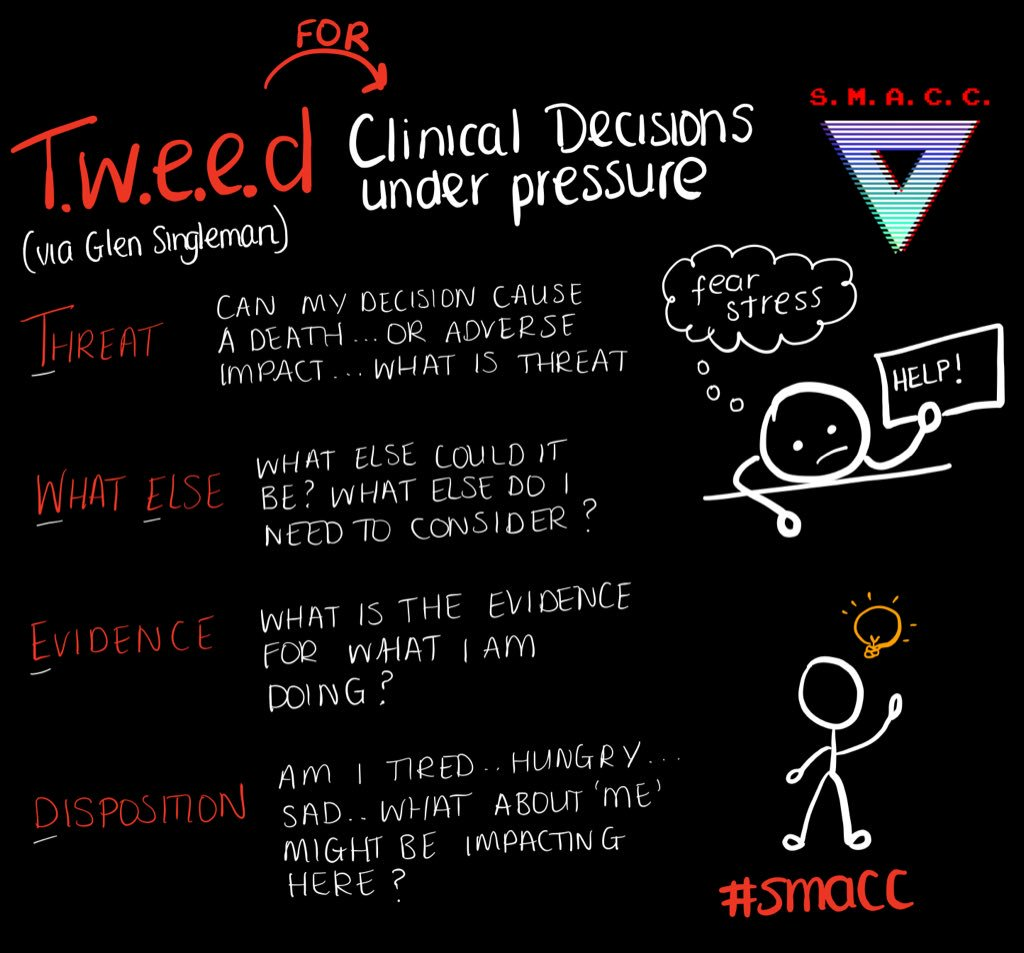 FOR
T.w.e.e.d
Clinical Decisions
under pressure
(via Glen Singleman)
S. M. A. C. C.
THREAT
CAN MY DECISION CAUSE
A DEATH... OR ADVERSE
IMPACT... WHAT IS THREAT
fear
stress
HELP!
WHAT ELSE
WHAT ELSE COULD IT
BE? WHAT ELSE DO I
NEED TO CONSIDER?
EVIDENCE
WHAT IS THE EVIDENCE
FOR WHAT I AM
DOING?
DISPOSITION
AM I TIRED.. HUNGRY...
SAD.. WHAT ABOUT 'ME'
MIGHT BE IMPACTING
HERE?
#smacc